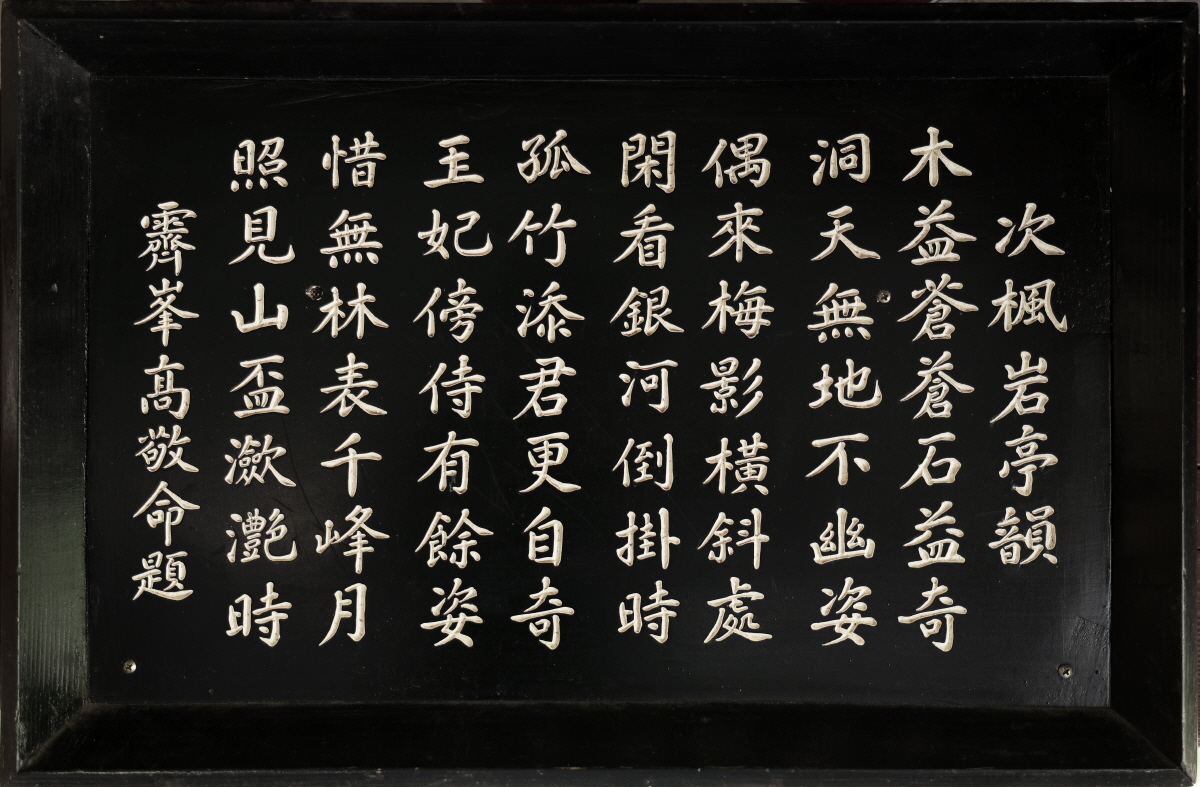 次楓岩亭韻
木益蒼蒼石益奇
洞天無地不幽姿
偶來梅影橫斜處
閑看銀河倒掛時
孤竹添君更自奇
王妃傍侍有餘姿
惜無林表千峰月
照見山盃瀲灔時
霽峯高敬命題